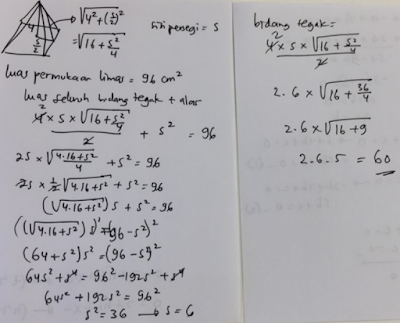 4
s/2
√4² + (s/2)²
= √16 + s²/4
sisi persegi = s
luas permukaan limas = 96 cm²
luas seluruh bidang tegak + alas
4² × s × √16 + s²/4 / 2 + s² = 96
2s × √4.16+s²/4 + s² = 96
2s × 1/2 √4.16+s² + s² = 96
(√4.16+s²) s + s² = 96
((√4.16+s²) s)² = (96 - s²)²
(64+s²)s² = (96 - s²)²
64s² + s⁴ = 96² - 192s² + s⁴
64s² + 192s² = 96²
s² = 36 → s = 6
bidang tegak =
4² × s × √16 + s²/4 / 2
2 . 6 × √16 + 36/4
2 . 6 × √16 + 9
2 . 6 . 5 = 60